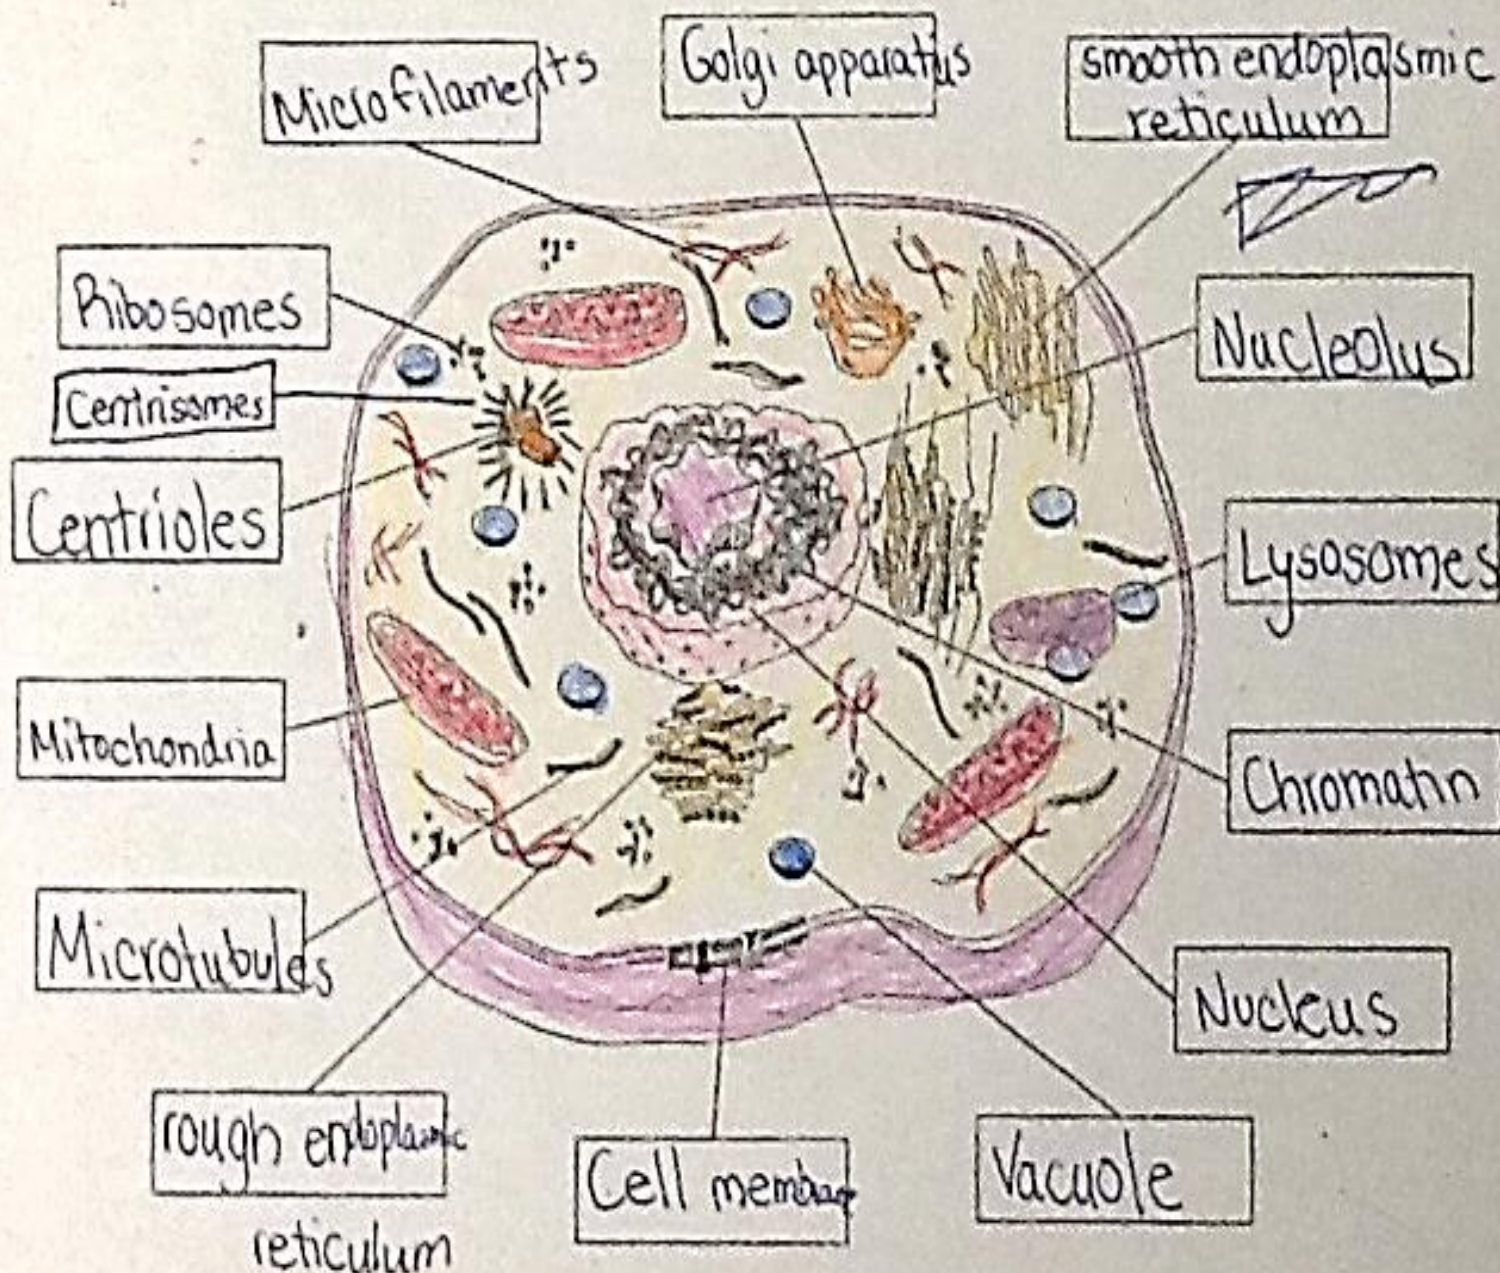 Microfilaments
Golgi apparatus
smooth endoplasmic
reticulum
Ribosomes
Nucleolus
Centrisomes
Centrioles
Lysosomes
Mitochondria
Chromatin
Microtubules
Nucleus
rough endoplasmic
reticulum
Cell membrane
Vacuole